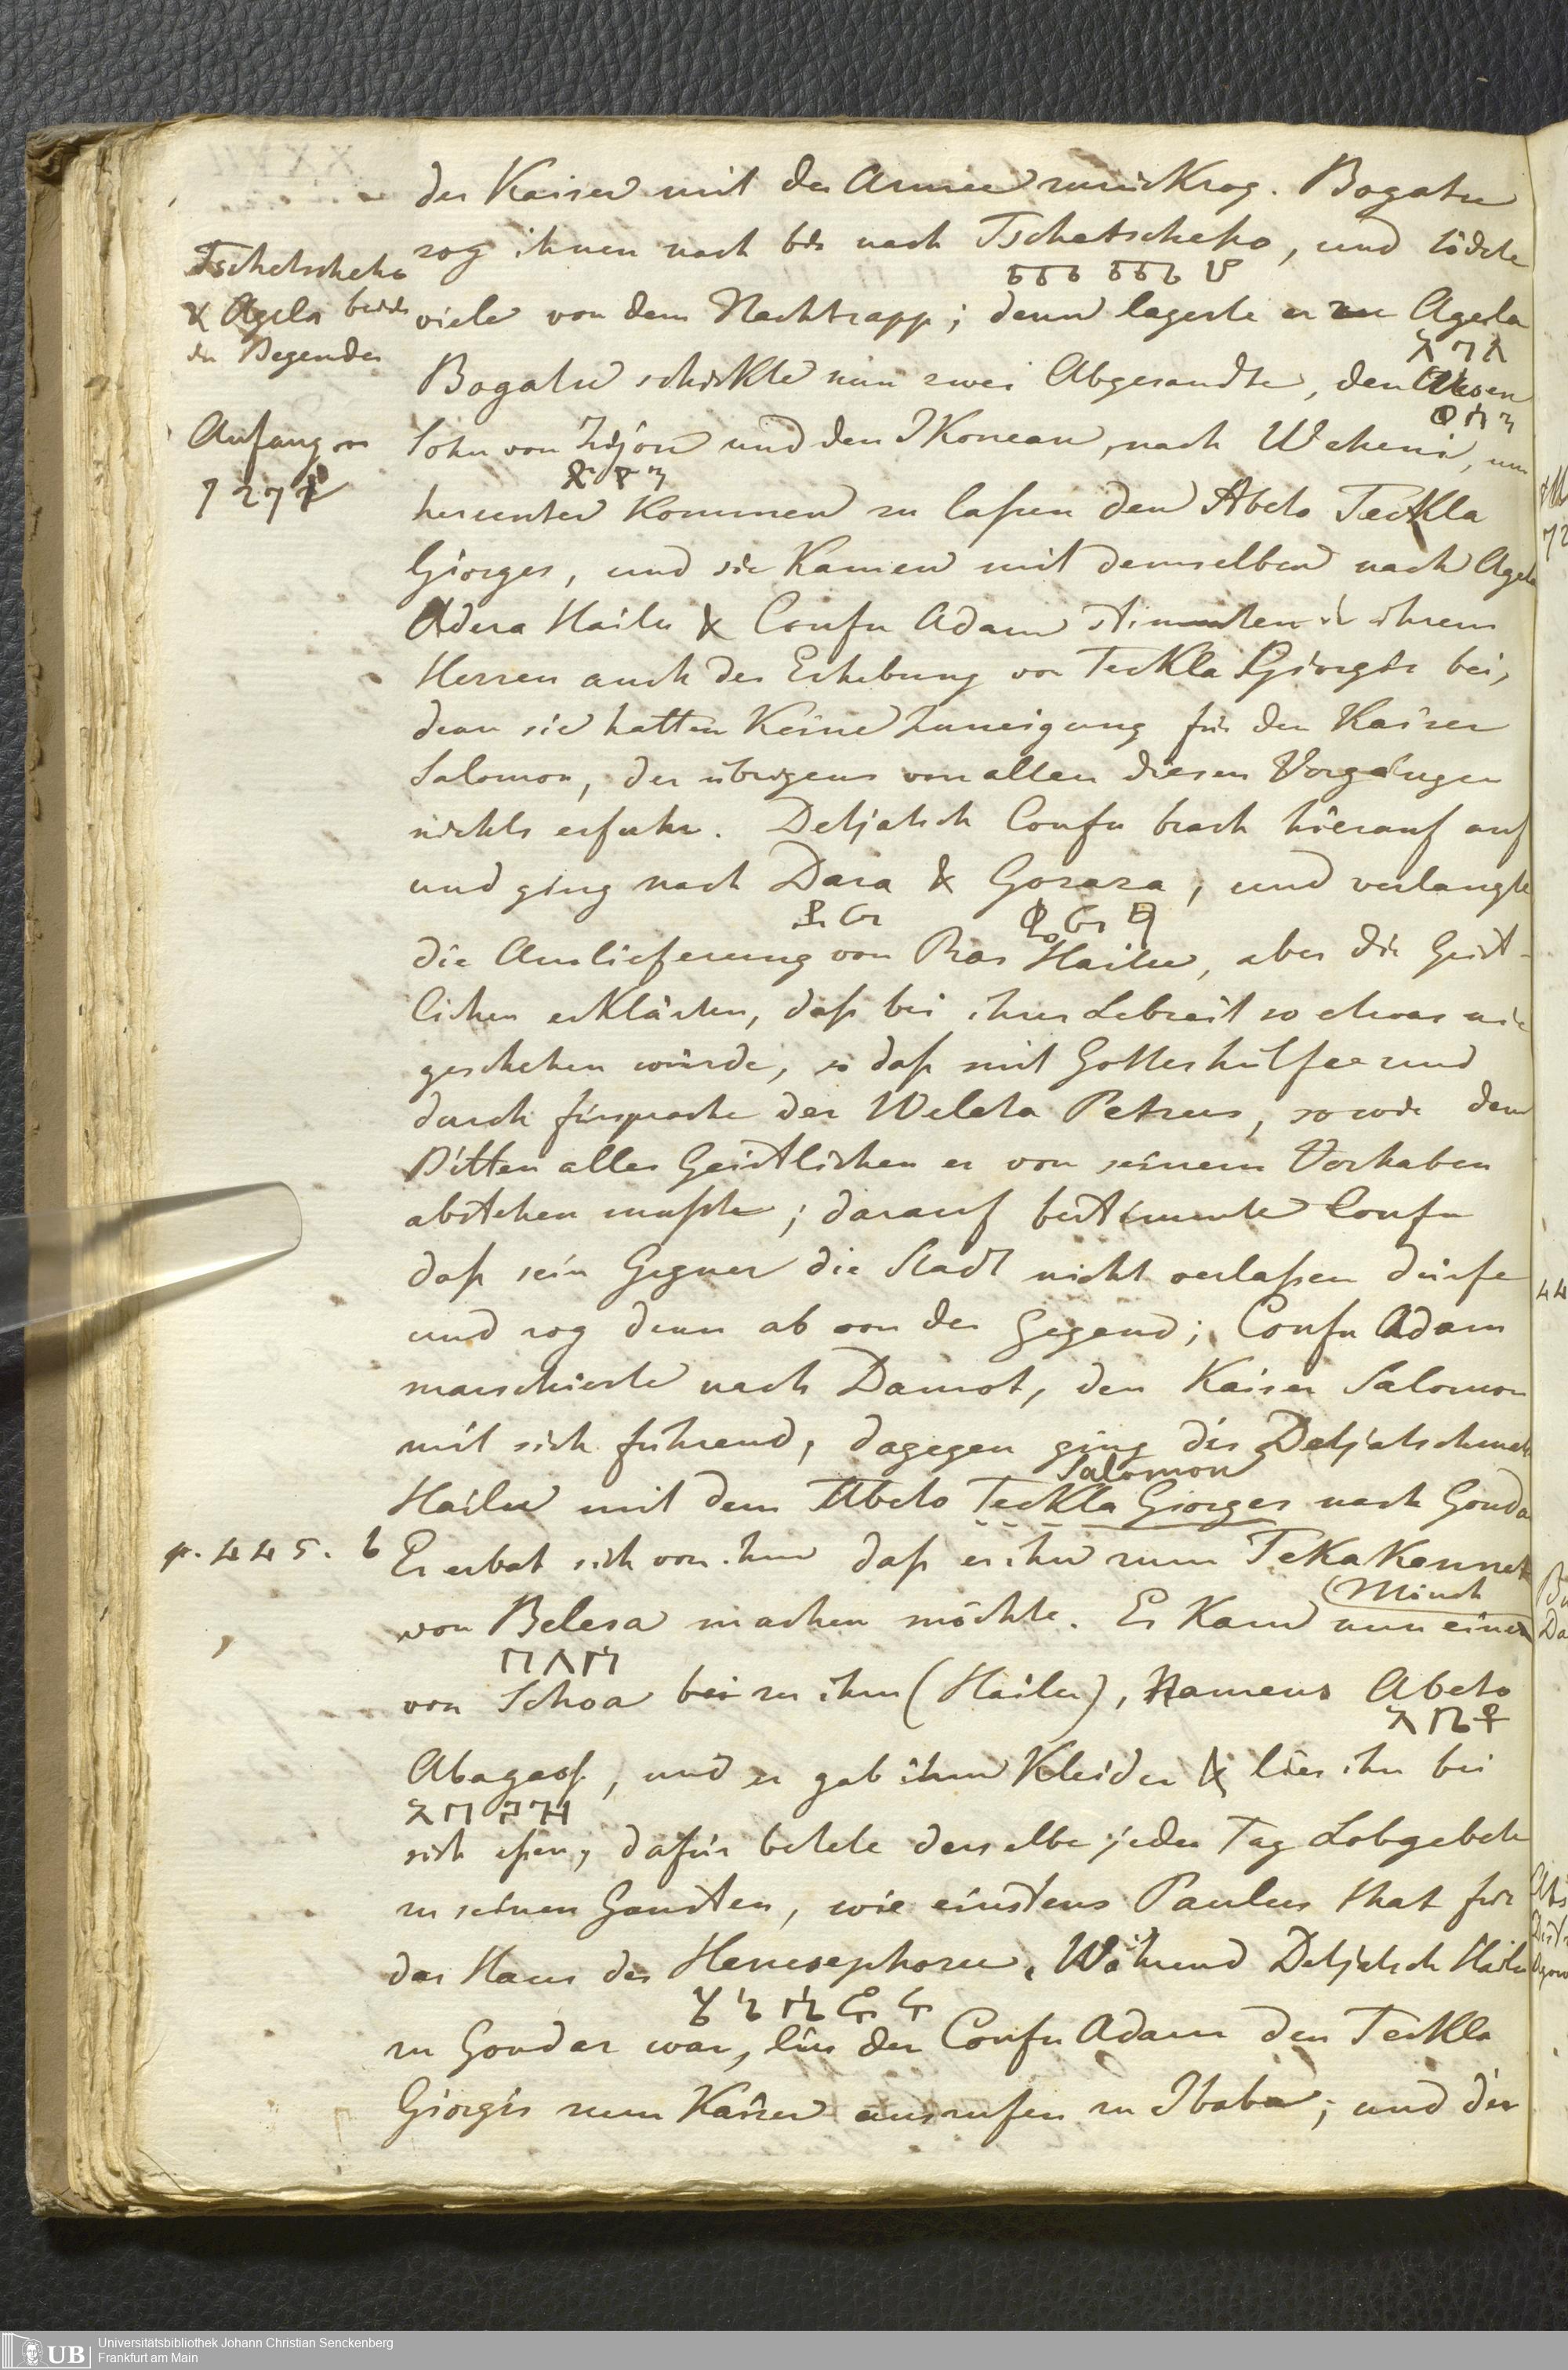 der Kaiser mit der Armee zurückzog. Bogatu
Tschetscheho
& Agela beide
in Begender
zog ihnen nach bis nach Tschetscheho, und tödete
viele von dem Nachtrapp; denn lagerte er zu Agela
Bogatu schickte nun zwei Abgesandte, den
Anfang von
Sohn von Zisjon und den Ikonean, nach Weheni, um
ጽዮን
herunter kommen zu laßen den Abeto Teckla
Giorges, und sie kamen mit demselben nach Agela
Adera Hailu & Confu Adam stimmten ihrem
Herren auch der Erhebung von Teckla Giorgis bei,
denn sie hatten keine Zuneigung für den Kaiser
Salomon, der übrigens von allen diesen Vorgängen
nichts erfuhr. Detjatsch Confu brach hierauf auf
und ging nach Dara & Goraza, und verlangte
ዳራ ቆራዛ
die Auslieferung von Ras Hailu, aber die Geist-
lichen erklärten, daß bei ihrer Lebzeit so etwas nie
geschehen würde, so daß mit Gotteshülfe und
durch fürsprache der Weleta Petrus, so wie dem
Bitten aller Geistlichen er von seinem Vorhaben
abstehen mußte; darauf bestimmte Confu
daß sein Gegner die Stadt nicht verlaßen dürfe
und zog denn ab von der Gegend; Confu Adam
marschierte nach Damot, den Kaiser Salomon
mit sich führend, dagegen ging der Detjatschmatsch
Salomon
Hailu mit dem Abeto Teckla Giorges nach Gonda
p. 445. b Er erbat sich von ihm daß er ihn zum Tekakennet
von Belesa machen möchte. Er kam nun einer
(Münch
በለሳ
von Schoa bei zu ihm (Hailu), Namens Abeto
አቤቶ
Abagaß, und er gab ihm Kleider & lies ihn bei
አበጋዝ
sich eßen, dafür betete derselbe jeden Tag Lobgebete
zu seinen Gunsten, wie einstens Paulus that für
das Haus des Henesephoru. Während Detjatsch Hailu
ሄኔሴፎሩ
zu Gondar war, lies der Confu Adam den Teckla
Giorgis zum Kaiser ausrufen zu Ibaba; und die
UB Universitätsbibliothek Johann Christian Senckenberg
Frankfurt am Main